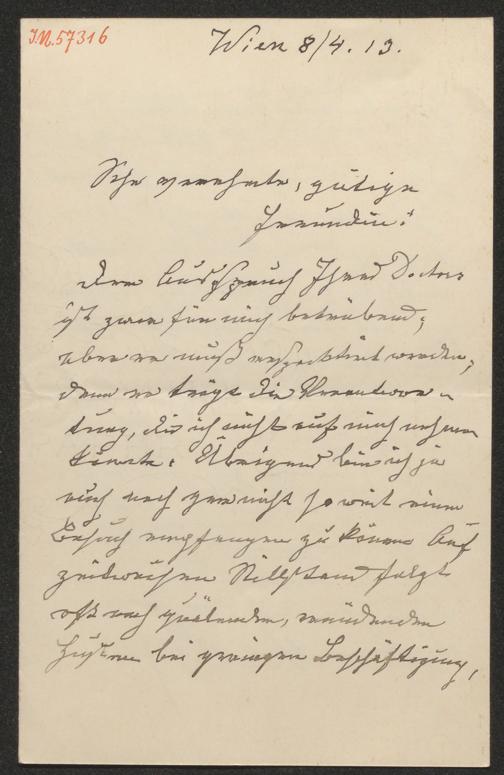 J.N. 57316
Wien 8/4. 13.
Sehr verehrte, gütige
Freundin!
Dem Ausspruch Ihres Doctors
ist zwar für mich betrübend;
aber er muß respecktirt werden,
denn er trägt die Verantwor-
tung, die ich nicht auf mich nehmen
könnte. Übrigens bin ich ja
auch noch gar nicht so weit einen
Besuch empfangen zu können Auf
zeitweisen Stillstand folgt
oft noch quälender, ermüdender
Husten bei geringer Beschäftigung,